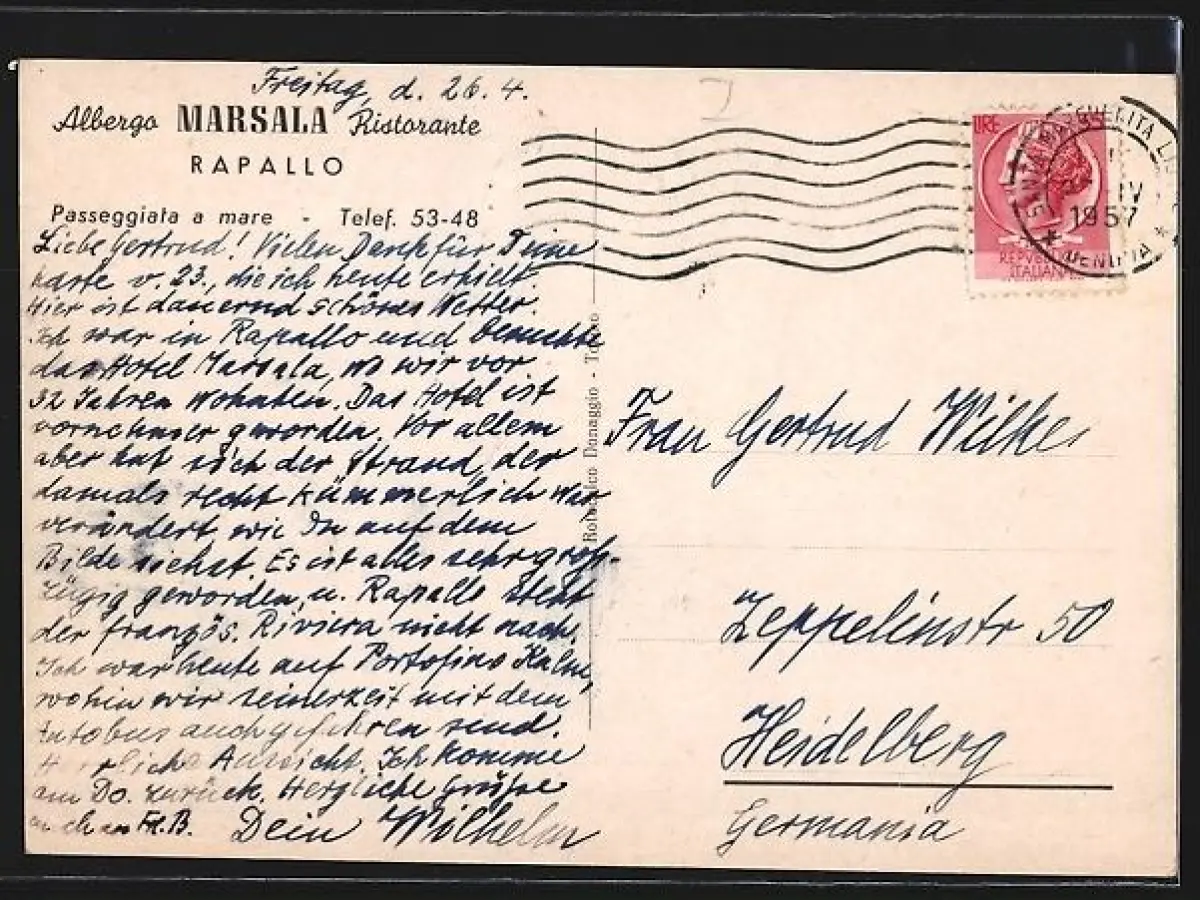 Freitag, d. 26.4.
Albergo MARSALA Ristorante
RAPALLO
Passeggiata a mare - Telef. 53-48
Liebe Gertrud! Vielen Dank für Deine
Karte v. 23., die ich heute erhielt.
Hier ist dauernd schönes Wetter.
Ich war in Rapallo und besuchte
das Hotel Marsala, wo wir vor
32 Jahren wohnten. Das Hotel ist
vornehmer geworden. Vor allem
aber hat sich der Strand, der
damals recht kümmerlich war
verändert, wie Du auf dem
Bilde siehst. Es ist alles sehr groß-
zügig geworden, u. Rapallo steht
der französ. Riviera nicht nach.
Ich war heute auf Portofino Kulm,
wohin wir seinerzeit mit dem
Autobus auch gefahren sind.
Herrliche Aussicht. Ich komme
am Do. zurück. Herzliche Grüße
auch an Fr. B. Dein Wilhelm
Rotocalco Dagnino - Torino
LIRE
REPVBBLICA
ITALIANA
SANTA MARGHERITA LIG
IV
1957
* GENOVA *
Frau Gertrud Wilkes
Zeppelinstr 50
Heidelberg
Germania